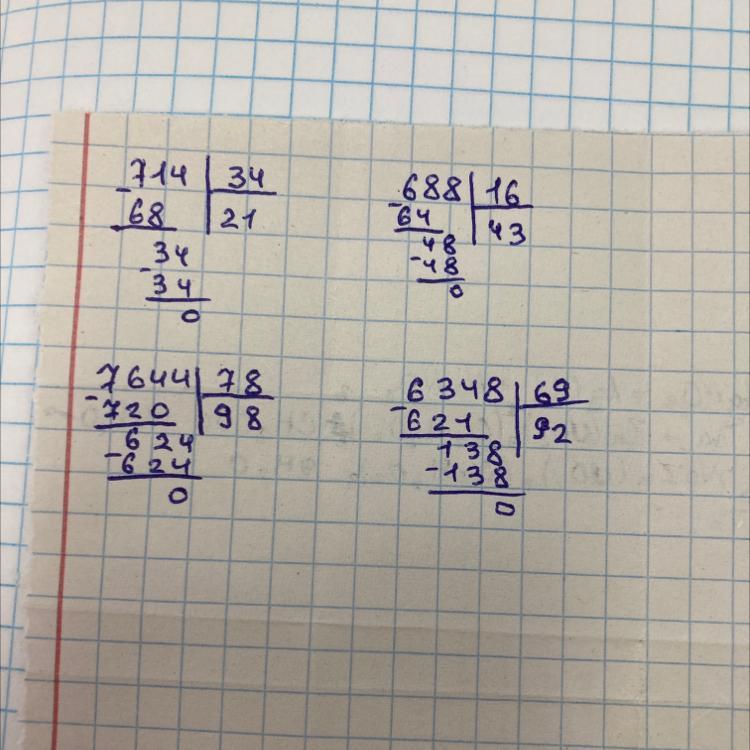 -714 | 34
68 | 21
-34
34
0
-688 | 16
64 | 43
48
-48
0
-7644 | 78
720 | 98
-624
624
0
-6348 | 69
621 | 92
138
-138
0